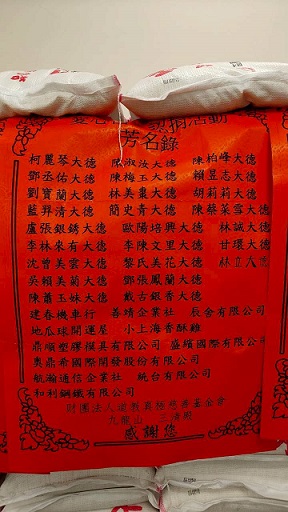 愛心
捐活動
芳名錄
柯麗琴大德 陳淑汝大德 陳柏峰大德
鄧丞佑大德 陳梅玉大德 賴昱志大德
劉寶蘭大德 林美棗大德 胡莉莉大德
藍羿清大德 簡史青大德 陳蔡茶雪大德
盧張銀銹大德 歐陽培興大德 林誠大德
李林來有大德 李陳文里大德 甘環大德
沈曾美雲大德 黎氏美花大德 林立大德
吳賴美菊大德 鄧張鳳蘭大德
陳蕭玉妹大德 戴古銀香大德
建春機車行 善靖企業社 股金有限公司
地瓜球開運屋 小上海香酥雞
鼎順塑膠模具有限公司 盛繽國際有限公
奧鼎希國際開發股份有限公司
航瀚通信企業社 統台有限公司
和利鋼鐵有限公司
財團法人道教真極慈善基金會
九龍山 玉清殿
感謝您